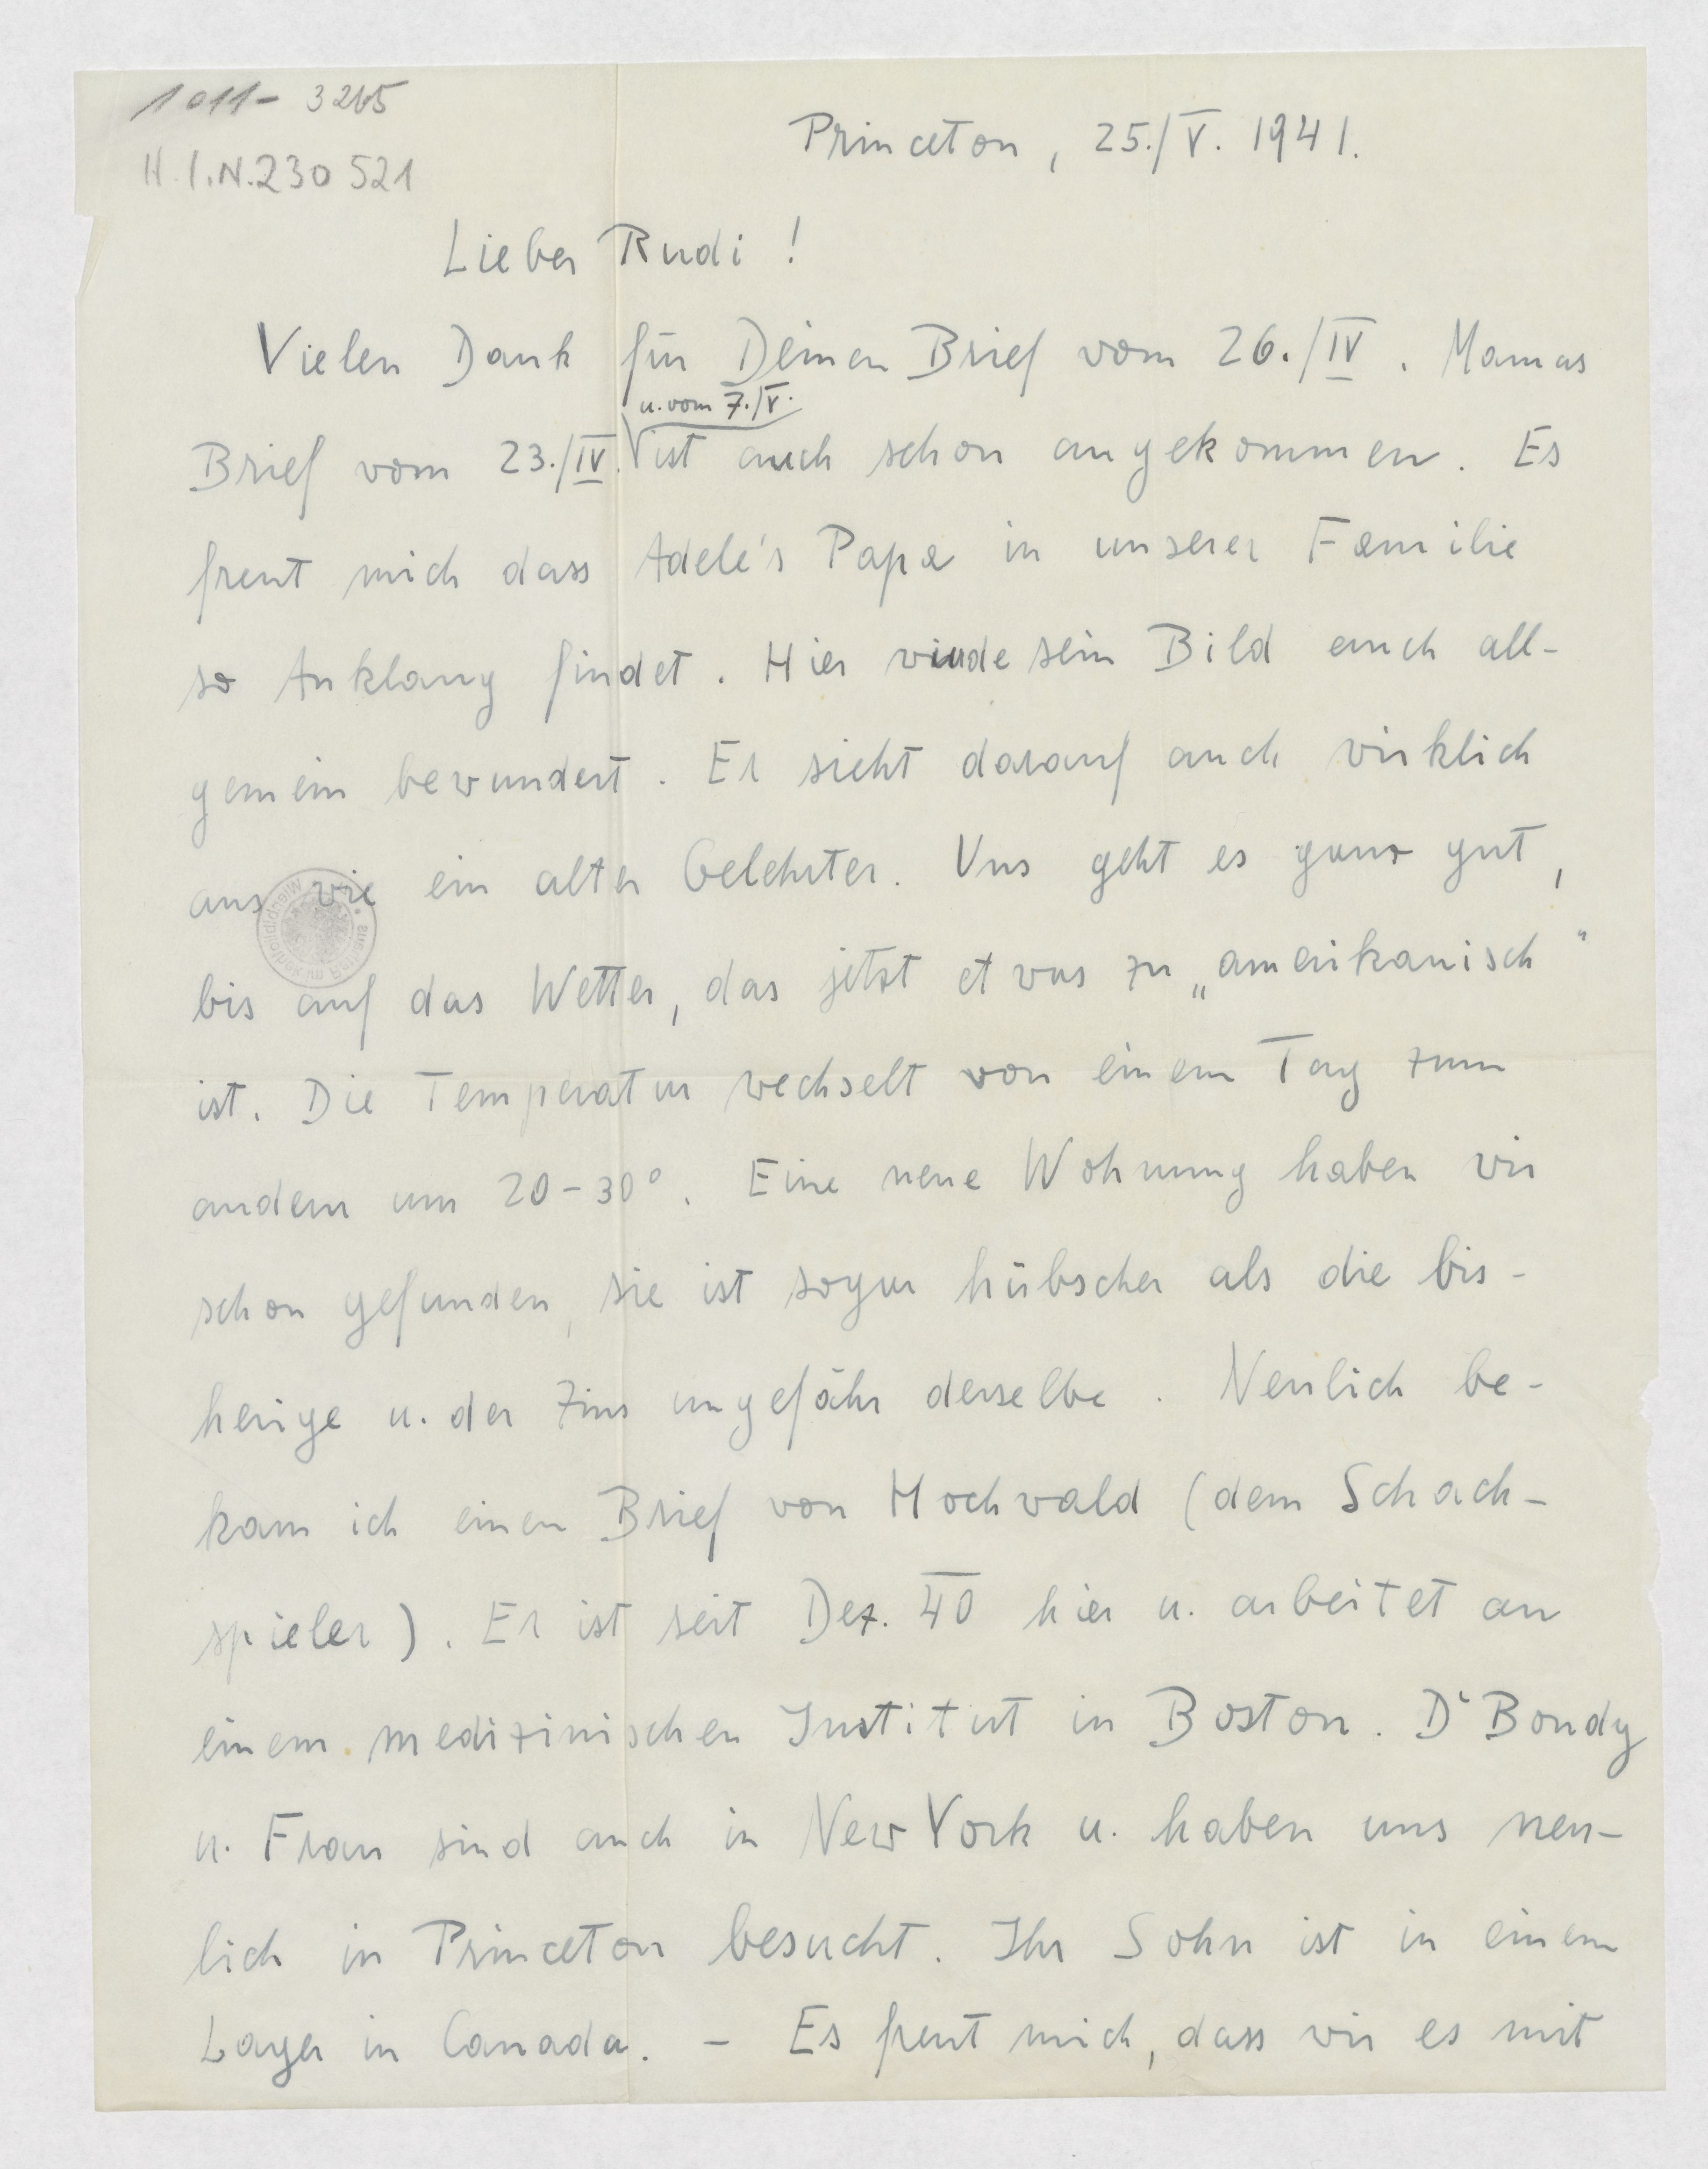 1011-3265
H.I.N.230 521
Princeton, 25./V. 1941.
Lieber Rudi!
Vielen Dank für Deinen Brief vom 26./IV. Mamas
u. vom 7./V.
Brief vom 23./IV. ist auch schon angekommen. Es
freut mich dass Adele's Papa in unserer Familie
so Anklang findet. Hier wurde sein Bild auch all-
gemein bewundert. Er sieht darauf auch wirklich
aus wie ein alter Gelehrter. Uns geht es ganz gut,
bis auf das Wetter, das jetzt etwas zu „amerikanisch"
ist. Die Temperatur wechselt von einem Tag zum
andern um 20-30°. Eine neue Wohnung haben wir
schon gefunden, sie ist sogar hübscher als die bis-
herige u. der Zins ungefähr derselbe. Neulich be-
kam ich einen Brief von Hochwald (dem Schach-
spieler). Er ist seit Dez. 40 hier u. arbeitet an
einem medizinischen Institut in Boston. Dr Bondy
u. Frau sind auch in New York u. haben uns neu-
lich in Princeton besucht. Ihr Sohn ist in einem
Lager in Canada. - Es freut mich, dass wir es mit